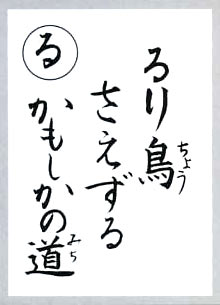 るり鳥
ちょう
さえずる
かもしかの道
みち
る